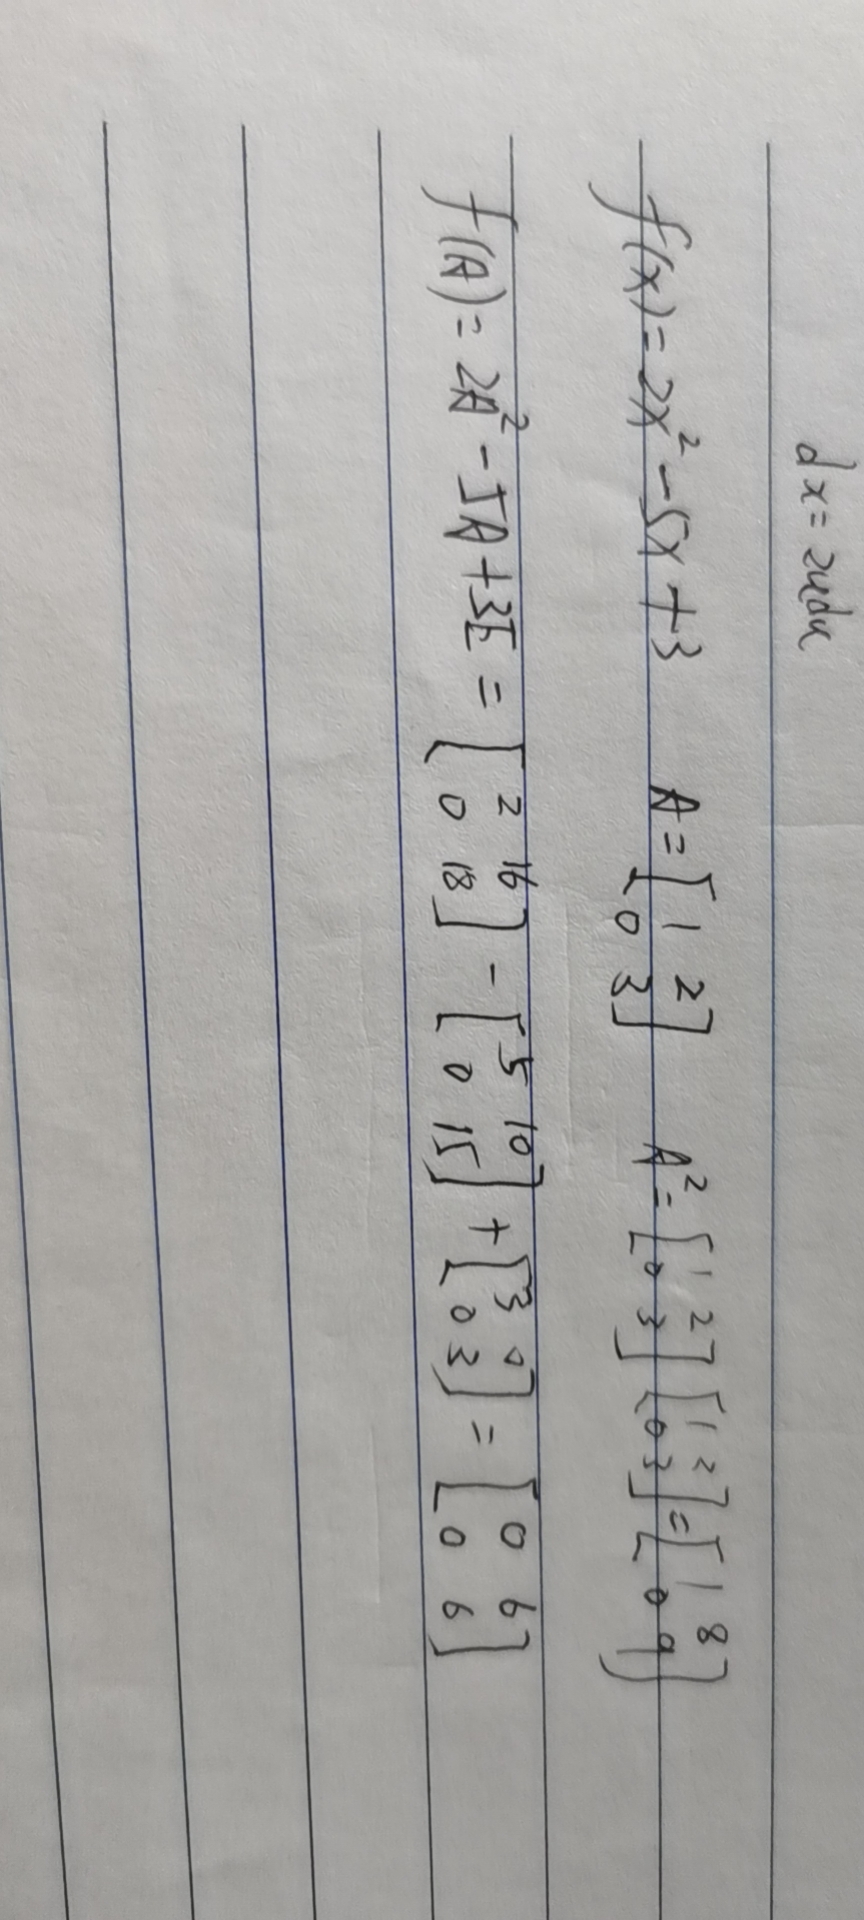 dx = 2udu
f(x) = 2x² - 5x + 3 A = [1 2; 0 3] A² = [1 2; 0 3] [1 2; 0 3] = [1 8; 0 9]
f(A) = 2A² - 5A + 3E = [2 16; 0 18] - [5 10; 0 15] + [3 0; 0 3] = [0 6; 0 6]